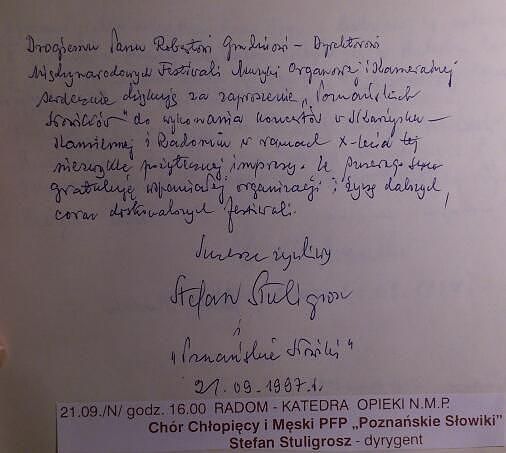 Drogiemu Panu Robertowi Grudniowi – Dyrektorowi
Międzynarodowych Festiwali Muzyki Organowej i Kameralnej
serdecznie dziękuję za zaproszenie „Poznańskich
Słowików” do wykonania koncertów w Skarżysku–
Kamiennej i Radomiu w ramach X-lecia tej
niezwykle pożytecznej imprezy. Ze szczerego serca
gratuluję wspaniałej organizacji i życzę dalszych,
coraz doskonalszych festiwali.
Zawsze życzliwy
Stefan Stuligrosz
i
„Poznańskie Słowiki”
21.09.1997 r.
21.09./N/ godz. 16.00 RADOM - KATEDRA OPIEKI N.M.P.
Chór Chłopięcy i Męski PFP „Poznańskie Słowiki”
Stefan Stuligrosz - dyrygent